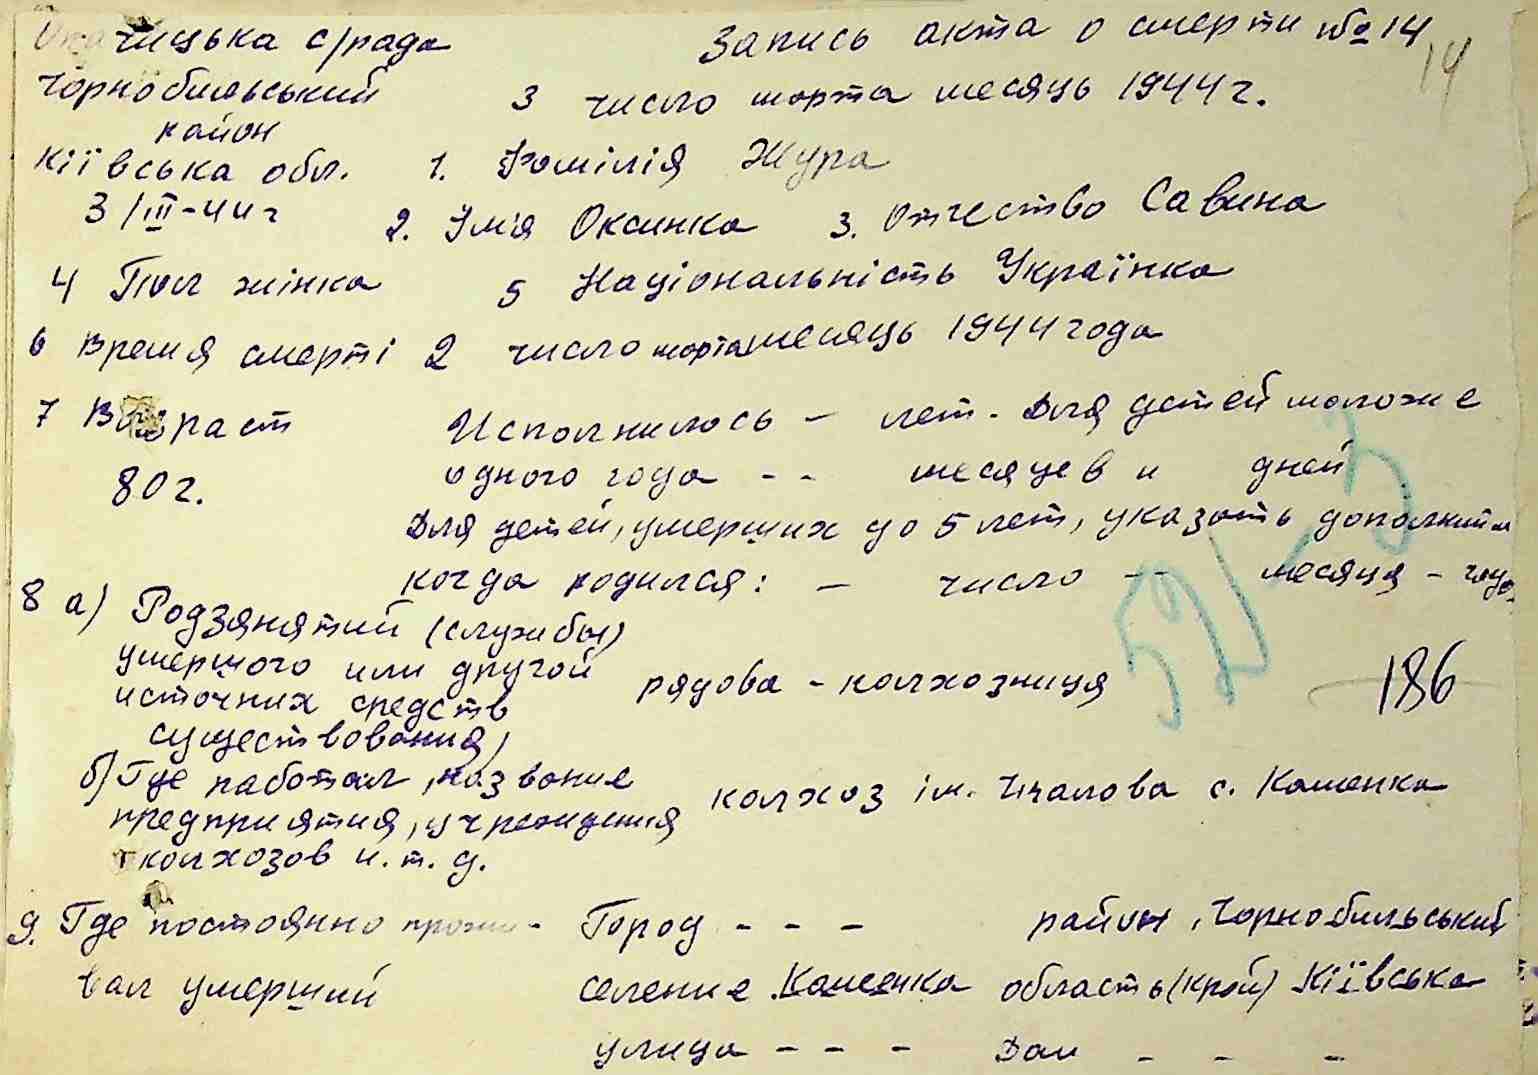 Опачицька с/рада Запись акта о смерти №14
14
Чорнобильський 3 число марта месяць 1944г.
район
Кіївська обл. 1. Фамілія Жура
3/III-44г 2. Імія Оксинка 3. Отчество Савина
4 Пол жінка 5 Національність Українка
6 Время смерті 2 число марта месяць 1944 года
7 Возраст Исполнилось — лет. Для детей моложе
80г. одного года - - месяцев и дней
Для детей, умерших до 5 лет, указать дополнител
когда родился: — число -- месяца - года
8 а) Род занятий (службы)
умершого или другой
источник средств рядова - колхозниця 186
существования,
б) Где работал, название
предприятия, учреждения колхоз ім. Чкалова с. Каменка
колхозов и. т. д.
9. Где постоянно прожи- Город - - - район Чорнобильський
вал умерший селение Каменка область (край) Кіївська
улица - - - Дом - - -